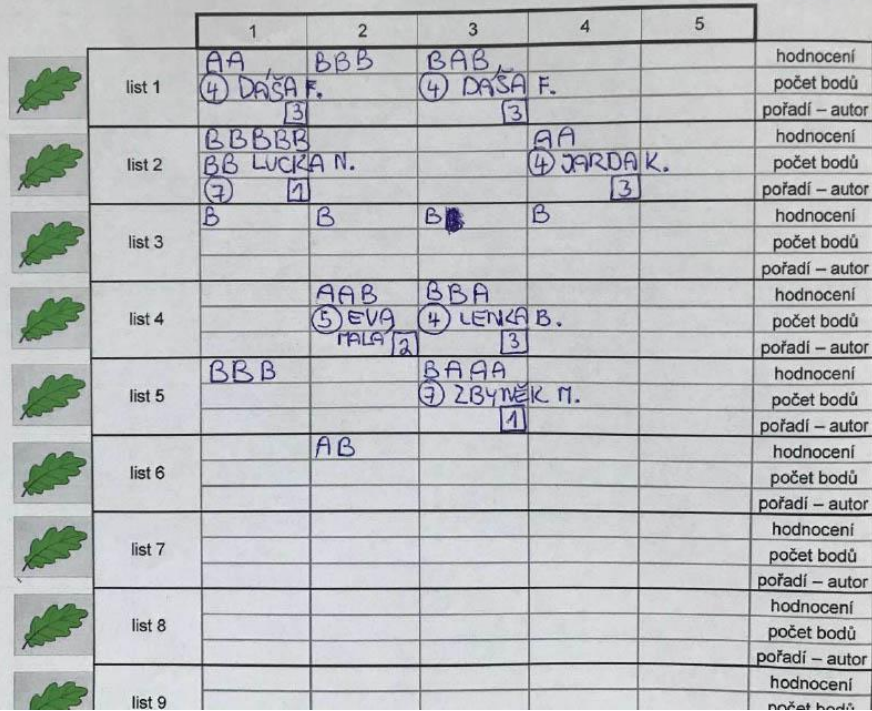 1 2 3 4 5
list 1
AA BBB BAB hodnocení
④ DÁŠA F. ④ DÁŠA F. počet bodů
3 3 pořadí – autor
list 2
BBBBB AA hodnocení
BB LUCKA N. ④ JARDA K. počet bodů
⑦ 1 3 pořadí – autor
list 3
B B B B hodnocení
počet bodů
pořadí – autor
list 4
AAB BBA hodnocení
⑤ EVA ④ LENKA B. počet bodů
MALÁ 2 3 pořadí – autor
list 5
BBB BAAA hodnocení
⑦ ZBYNĚK M. počet bodů
1 pořadí – autor
list 6
AB hodnocení
počet bodů
pořadí – autor
list 7
hodnocení
počet bodů
pořadí – autor
list 8
hodnocení
počet bodů
pořadí – autor
list 9
hodnocení
počet bodů